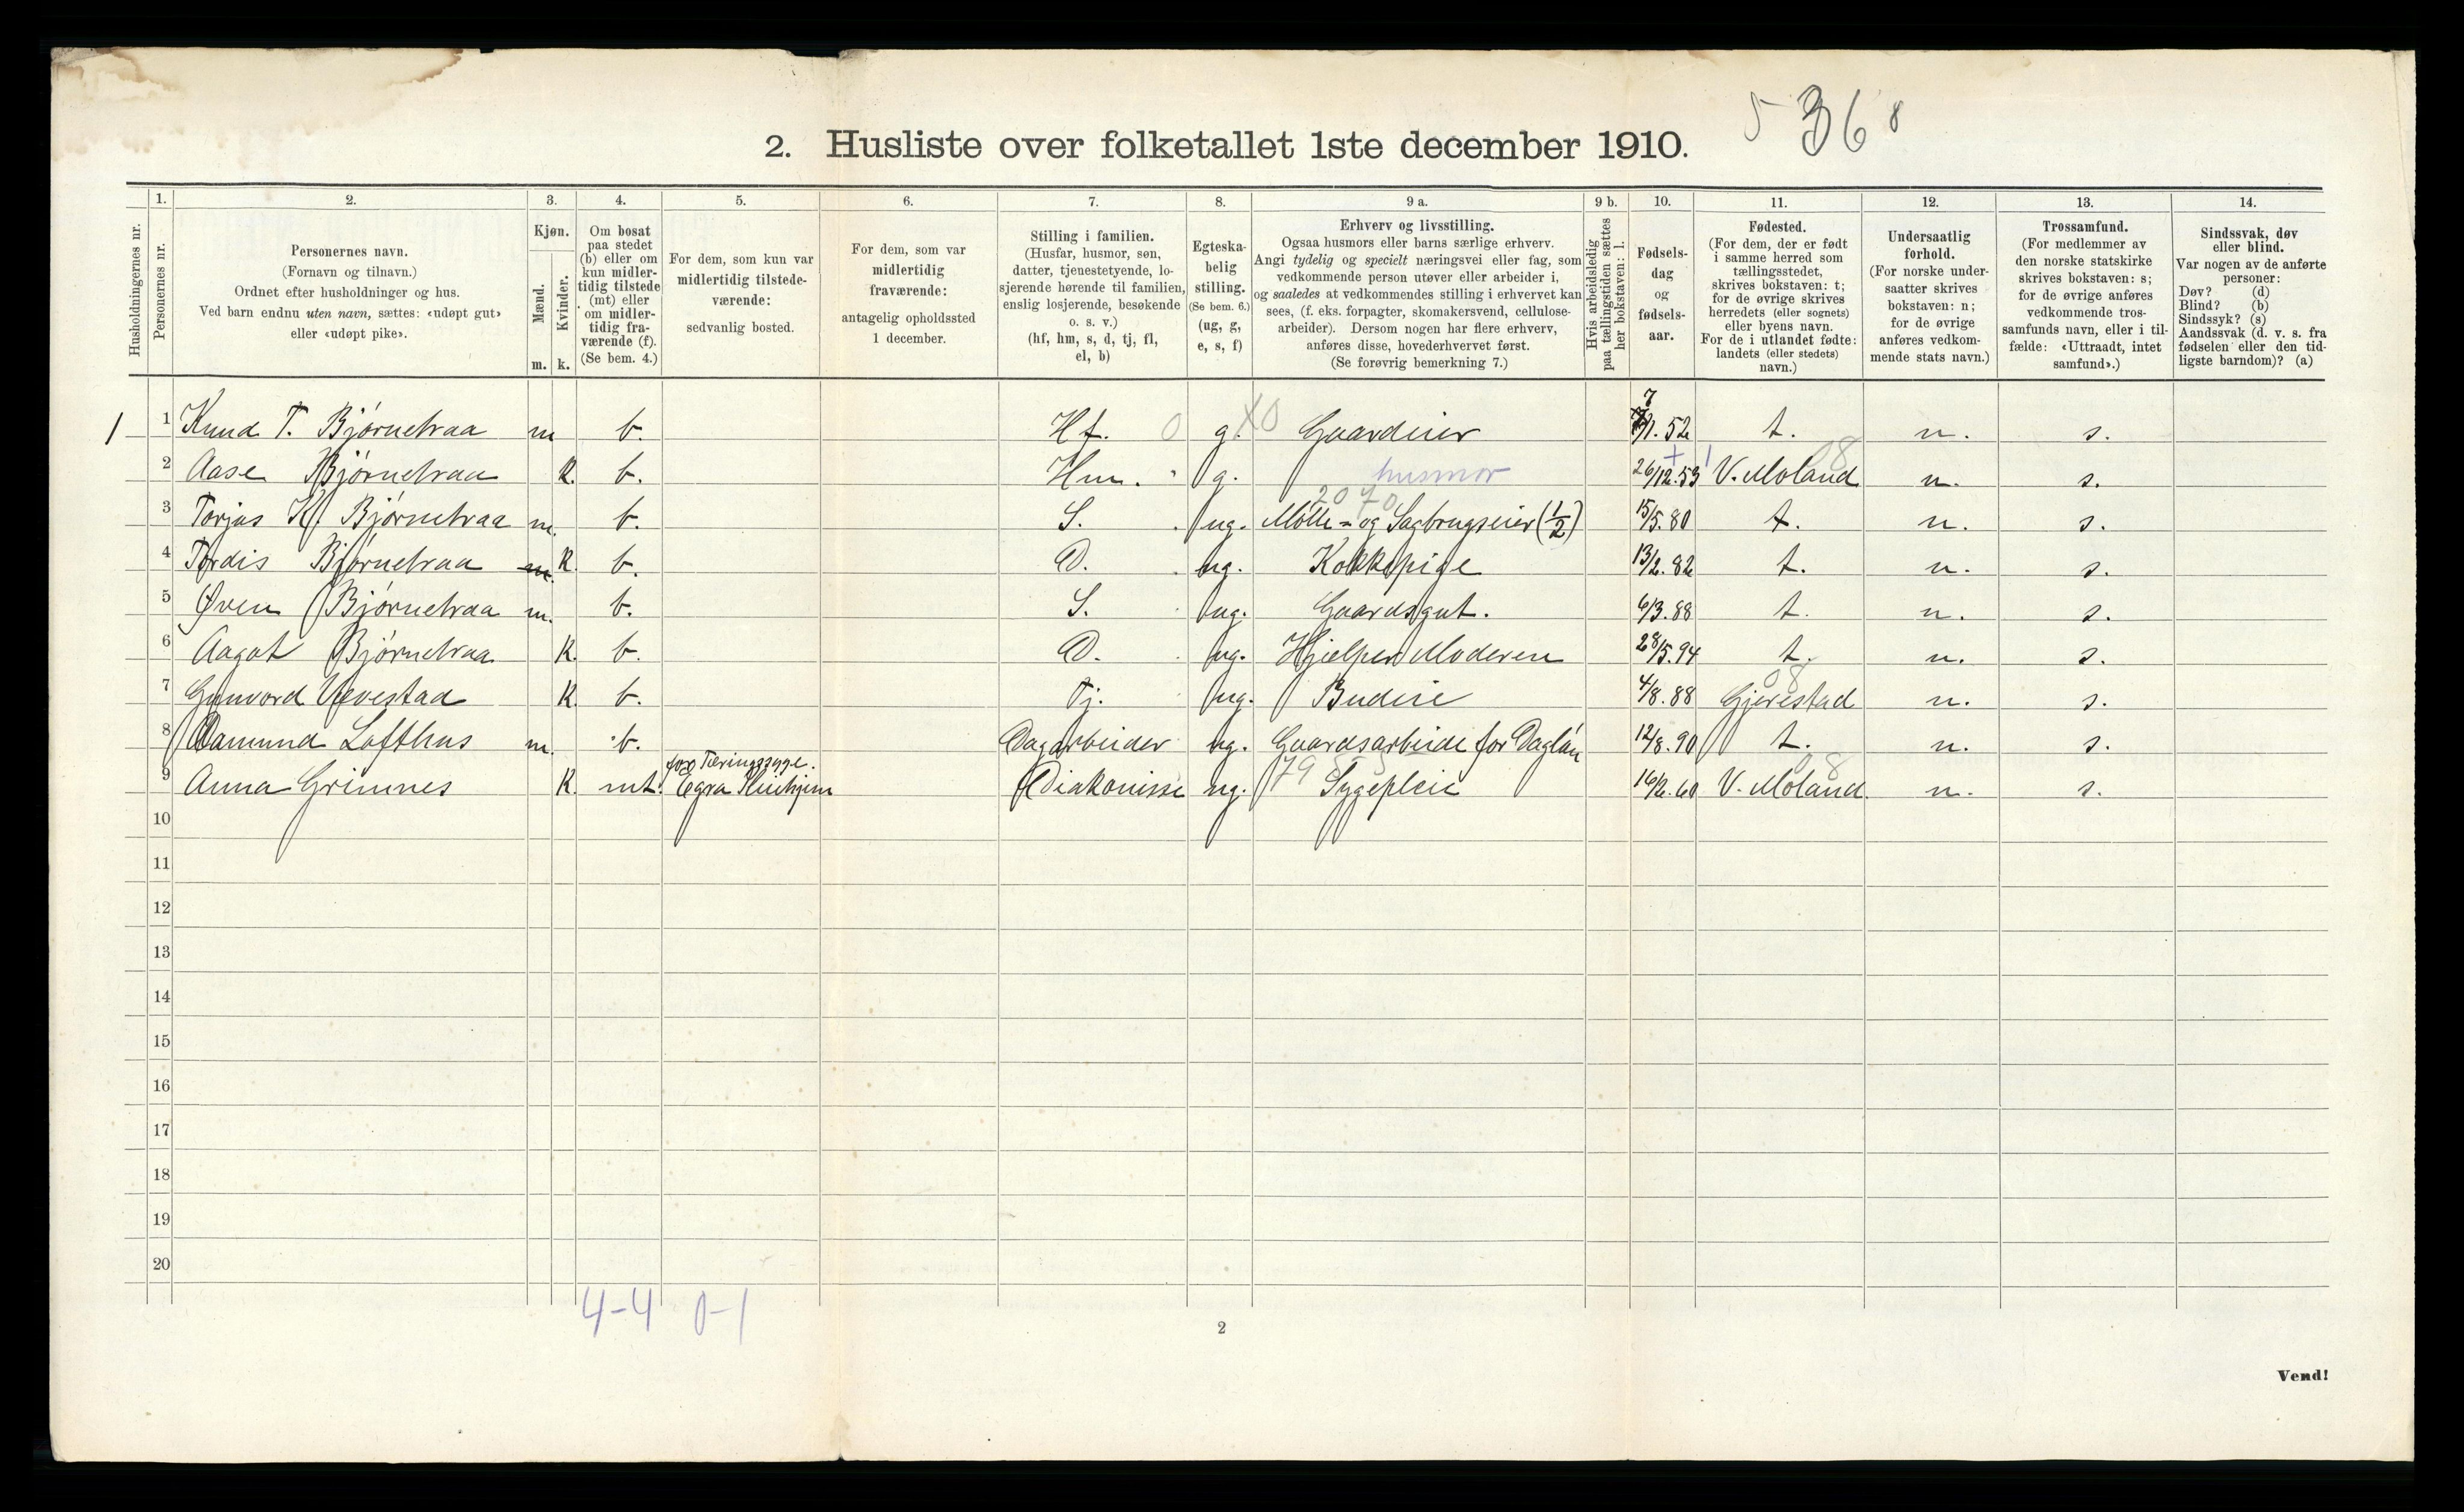 5 36 8
2. Husliste over folketallet 1ste december 1910.
Husholdningernes nr.
1.
Personernes nr.
2.
Personernes navn.
(Fornavn og tilnavn.)
Ordnet efter husholdninger og hus.
Ved barn endnu uten navn, sættes: «udøpt gut»
eller «udøpt pike».
3.
Kjøn.
Mænd.
Kvinder.
m. k.
4.
Om bosat
paa stedet
(b) eller om
kun midler-
tidig tilstede
(mt) eller
om midler-
tidig fra-
værende (f).
(Se bem. 4.)
5.
For dem, som kun var
midlertidig tilstede-
værende:
sedvanlig bosted.
6.
For dem, som var
midlertidig
fraværende:
antagelig opholdssted
1 december.
7.
Stilling i familien.
(Husfar, husmor, søn,
datter, tjenestetyende, lo-
sjerende hørende til familien,
enslig losjerende, besøkende
o. s. v.)
(hf, hm, s, d, tj, fl,
el, b)
8.
Egteska-
belig
stilling.
(Se bem. 6.)
(ug, g,
e, s, f)
9 a.
Erhverv og livsstilling.
Ogsaa husmors eller barns særlige erhverv.
Angi tydelig og specielt næringsvei eller fag, som
vedkommende person utøver eller arbeider i,
og saaledes at vedkommendes stilling i erhvervet kan
sees, (f. eks. forpagter, skomakersvend, cellulose-
arbeider). Dersom nogen har flere erhverv,
anføres disse, hovederhvervet først.
(Se forøvrig bemerkning 7.)
9 b.
Hvis arbeidsledig
paa tællingstiden sættes
her bokstaven: l.
10.
Fødsels-
dag
og
fødsels-
aar.
11.
Fødested.
(For dem, der er født
i samme herred som
tællingsstedet,
skrives bokstaven: t;
for de øvrige skrives
herredets (eller sognets)
eller byens navn.
For de i utlandet fødte:
landets (eller stedets)
navn.)
12.
Undersaatlig
forhold.
(For norske under-
saatter skrives
bokstaven: n;
for de øvrige
anføres vedkom-
mende stats navn.)
13.
Trossamfund.
(For medlemmer av
den norske statskirke
skrives bokstaven: s;
for de øvrige anføres
vedkommende tros-
samfunds navn, eller i til-
fælde: «Uttraadt, intet
samfund».)
14.
Sindssvak, døv
eller blind.
Var nogen av de anførte
personer:
Døv? (d)
Blind? (b)
Sindssyk? (s)
Aandssvak (d. v. s. fra
fødselen eller den tid-
ligste barndom)? (a)
1 1 Knud T. Bjørnetraa m b. Hf. 0 g. X0 Gaardeier 7/1. 52 t. n. s.
2 Aase Bjørnetraa K. b. Hm. g. husmor 26/12.53 V. Moland n. s.
3 Torjus K. Bjørnetraa m. b. S. ug. Mølle- og Sagbrugseier (1/2) 15/5.80 t. n. s.
4 Tordis Bjørnetraa m. K. b. D. ug. Kokkepige 13/2. 82 t. n. s.
5 Øven Bjørnetraa m. b. S. ug. Gaardsgut. 6/3.88 t. n. s.
6 Aagot Bjørnetraa K. b. D. ug. Hjælper Moderen 28/5.94 t. n. s.
7 Gunvord Vevestad K. b. Tj. ug. Budeie 4/8.88 Gjerestad n. s.
8 Aamund Lofthus m. b. Dagarbeider ug. Gaardsarbeide for Dagløn 12/8.90 t. n. s.
for Tæringssyge.
9 Anna Grimnes K. mt. Egra Pleiehjem Diakonisse ug. Sygepleie 16/2.60 V. Moland n. s.
10
11
12
13
14
15
16
17
18
19
20
4-4 0-1
2
Vend!